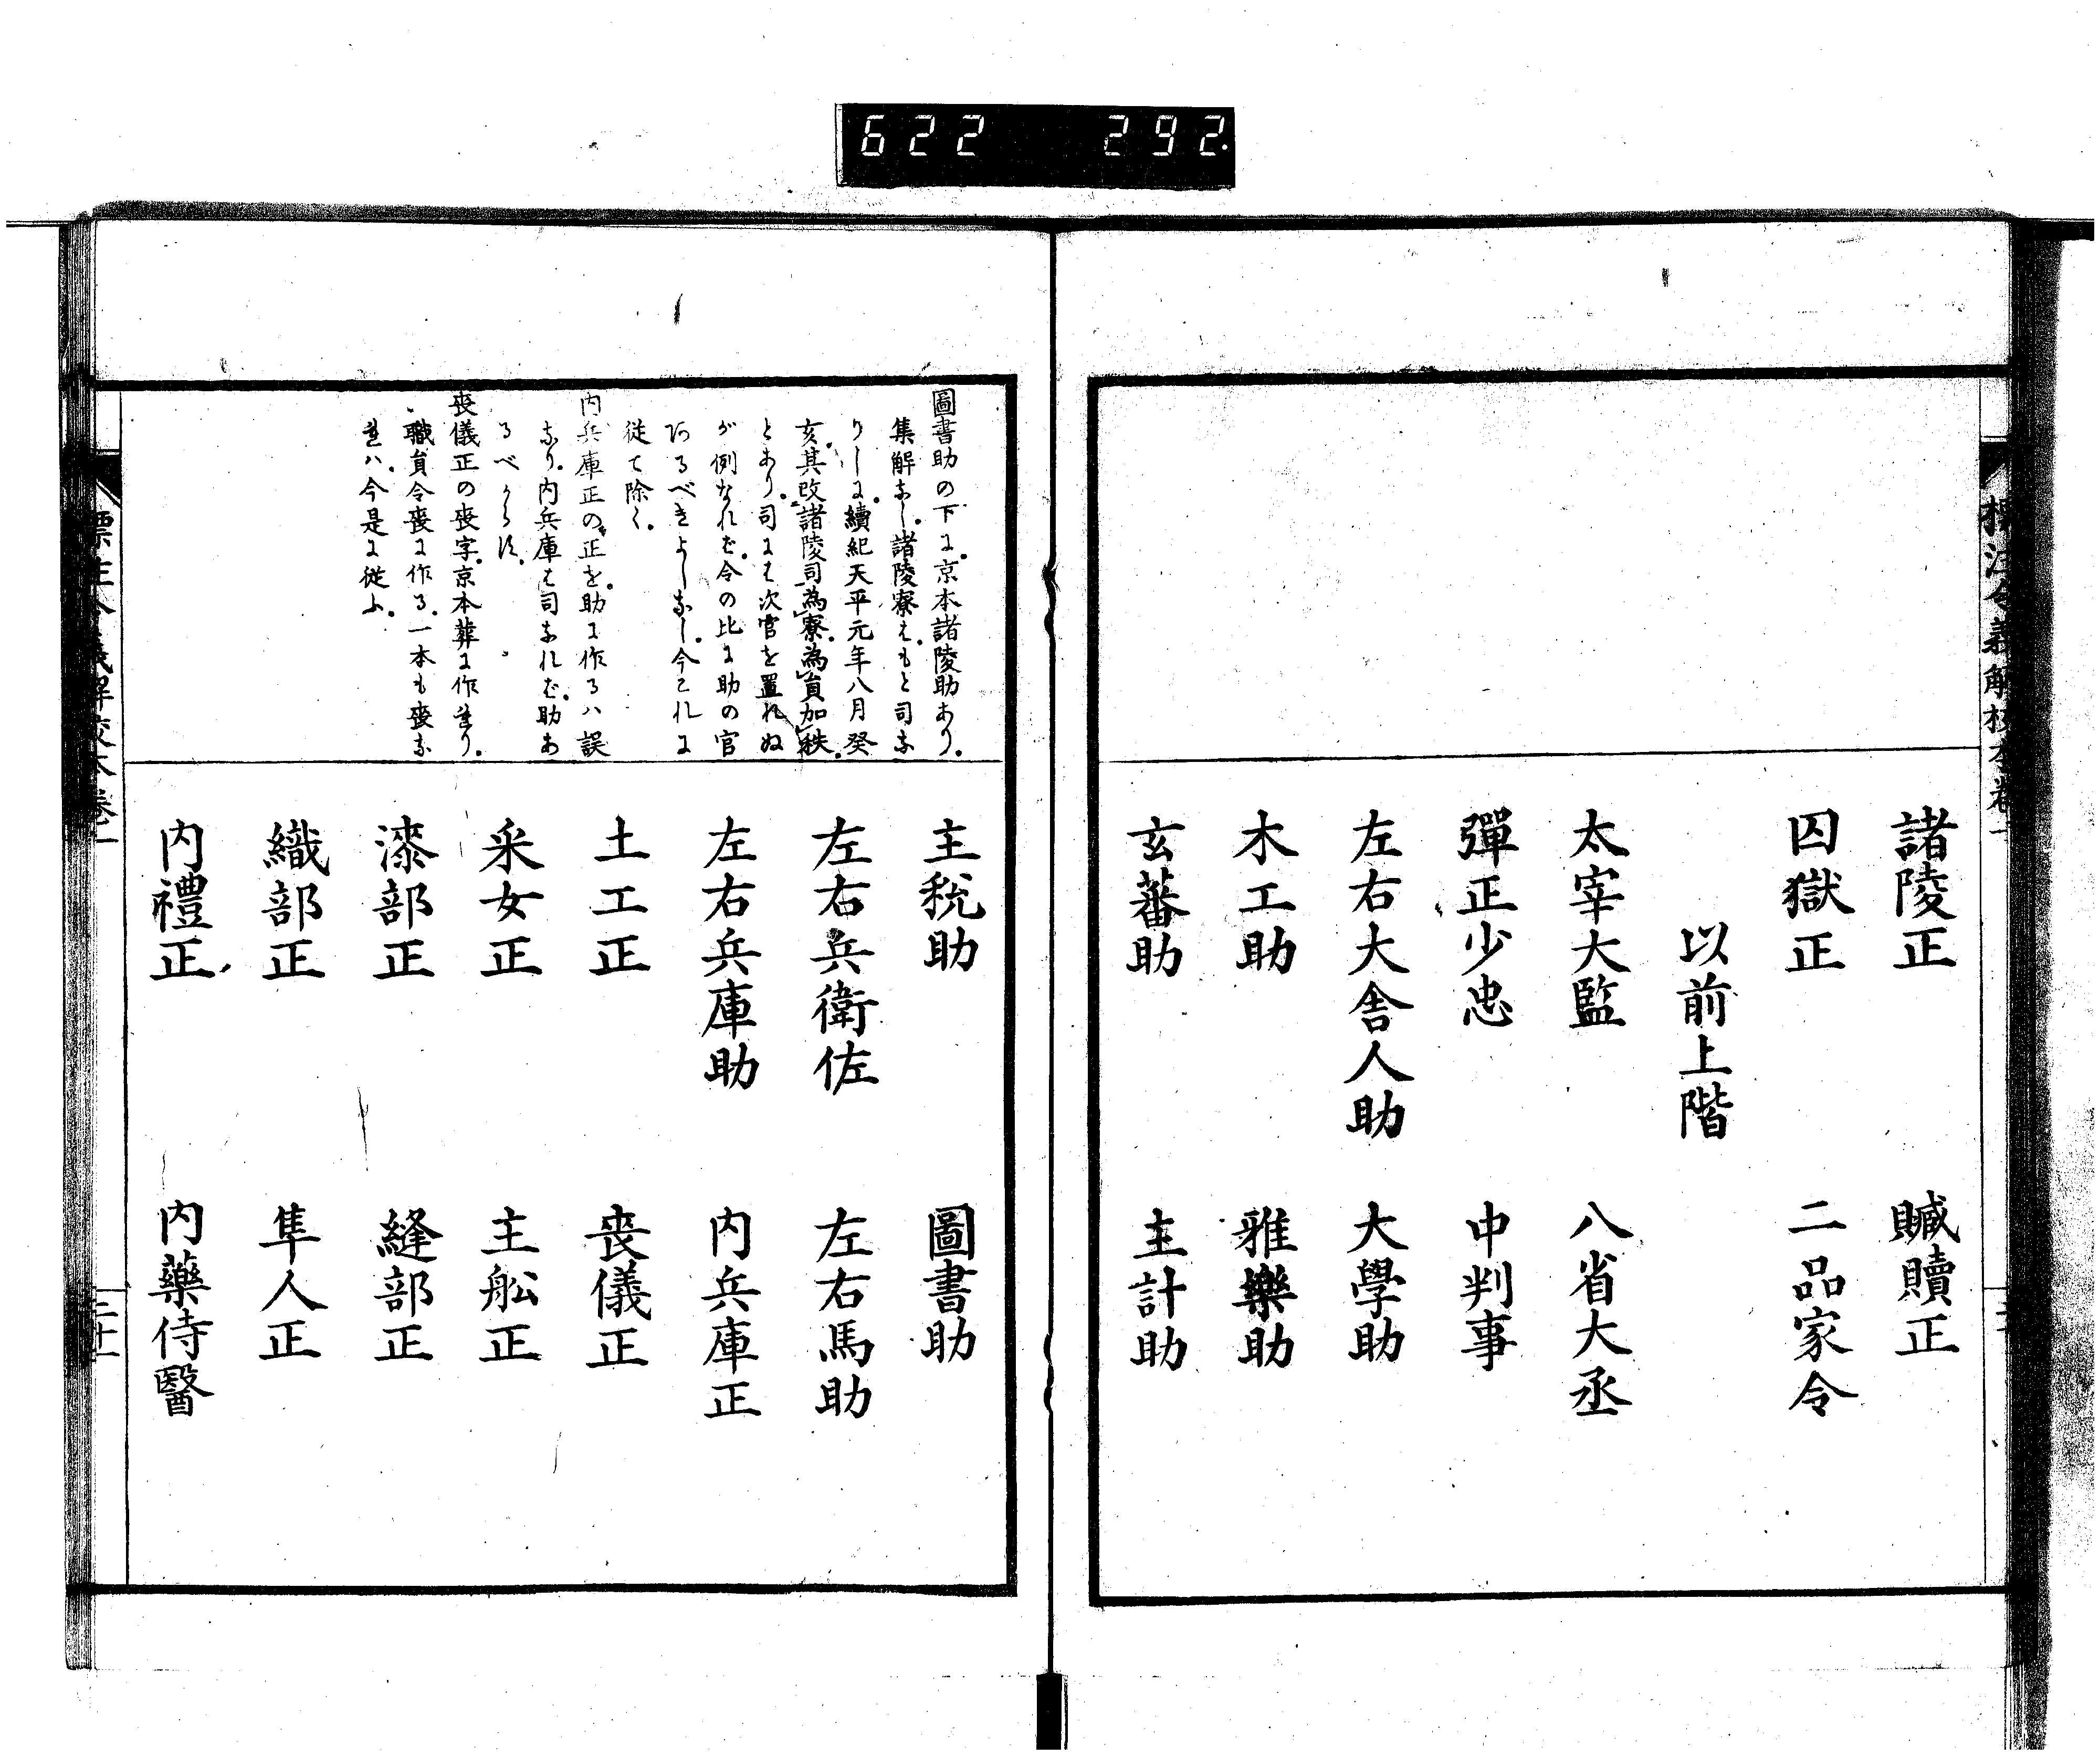 622 292
標注令義解校本卷一
諸陵正 贓贖正
囚獄正 二品家令
以前上階
太宰大監 八省大丞
彈正少忠 中判事
左右大舍人助 大學助
木工助 雅樂助
玄蕃助 主計助
圖書助の下に、京本諸陵助あり。
集解なし。諸陵寮は、もと司な
りしに、續紀天平元年八月癸
亥、其改諸陵司為寮、為員加秩、
とあり。司には次官を置れぬ
が例なれば、令の比に助の官
あるべきよしなし。今これに
従て除く。
内兵庫正の正を、助に作るハ誤
なり。内兵庫は司なれば、助あ
るべからず。
喪儀正の喪字、京本葬に作れり。
職員令喪に作る。一本も喪な
れハ、今是に従ふ。
主税助 圖書助
左右兵衛佐 左右馬助
左右兵庫助 内兵庫正
土工正 喪儀正
采女正 主船正
漆部正 縫部正
織部正 隼人正
内禮正 内藥侍醫
標注令義解校本卷一
二十一